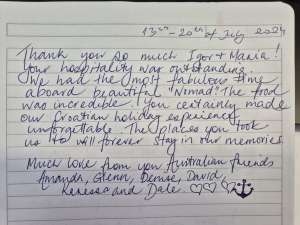 13th - 20th of July 2024
Thank you so much Igor + Maria!
Your hospitality was outstanding.
We had the most fabulous time
aboard beautiful "Nomad" the food
was incredible! You certainly made
our Croatian holiday experience
unforgettable. The places you took
us to will forever stay in our memories.
Much love from you Australian friends
Amanda, Glenn, Denise, David,
and Dale.